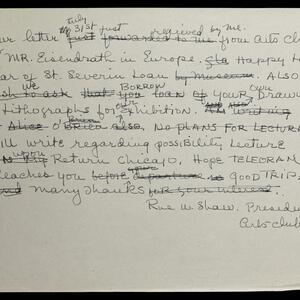 July
31st just received by me.
ur letter just forwarded to me from Arts Clu
MR. Eisendrath in Europe. Gla Happy H
ear of St. Severin Loan by museum. ALSO
we BORROW our
sh to ask that you loan of your Drawi
Lithographs for exhibition. AND ALSO
Alice O'Brien also, No PLANS FOR LECTURE
ILL write regarding possibility Lecture
upon
Return Chicago. Hope TELEGRAM
eaches you before departure GOOD TRIP,
and many thanks for your interest.
Rue W. Shaw. Presiden
Arts Club